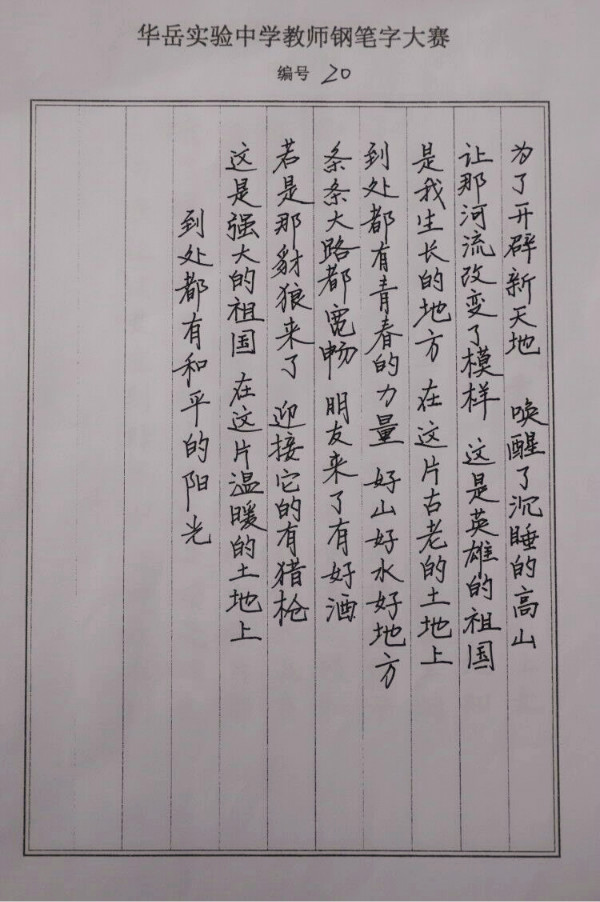 华岳实验中学教师钢笔字大赛
编号 20
为了开辟新天地 唤醒了沉睡的高山
让那河流改变了模样 这是英雄的祖国
是我生长的地方 在这片古老的土地上
到处都有青春的力量 好山好水好地方
条条大路都宽畅 朋友来了有好酒
若是那豺狼来了 迎接它的有猎枪
这是强大的祖国 在这片温暖的土地上
到处都有和平的阳光